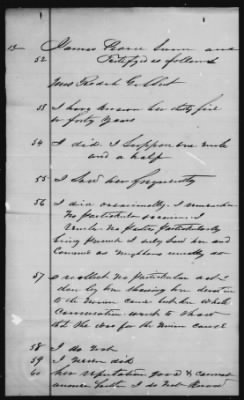 James Pearce Sworn and
52 Testified as follows
Mrs
53 I have known her thirty five
to forty years
54 I did. I suppose one mile
and a half
55 I saw her frequently
56 I did occasionally. I remember
no particular occasion. I
no particularly
being present I only saw her and
as neighbors usually do
57 I recollect no particular act
done by her showing her devotion
to the Union cause but her whole
conversation went to show
that she was for the Union cause
58 I do not
59 I never did
60 her reputation good I cannot
answer further I do not know